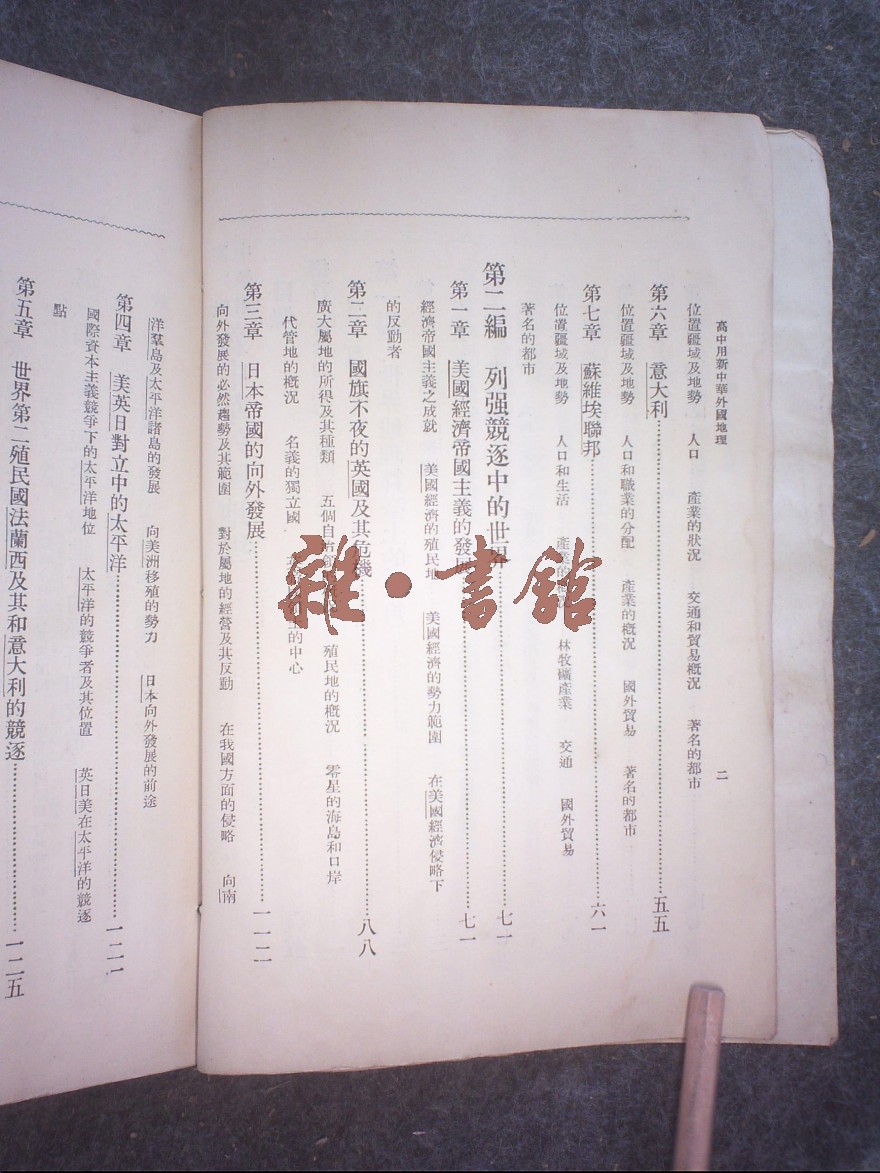 高中用新中華外國地理
二
位置疆域及地勢 人口 產業的狀況 交通和貿易概況 著名的都市
第六章 意大利 五五
位置疆域及地勢 人口和職業的分配 產業的概況 國外貿易 著名的都市
第七章 蘇維埃聯邦 六一
位置疆域及地勢 人口和生活 產業的概況 林牧礦產業 交通 國外貿易
著名的都市
第二編 列强競逐中的世 七一
第一章 美國經濟帝國主義的發 七一
經濟帝國主義之成就 美國經濟的殖民地 美國經濟的勢力範圍 在美國經濟侵略下
的反動者
第二章 國旗不夜的英國及其危機 八八
廣大屬地的所得及其種類 五個自治 殖民地的概況 零星的海島和口岸
代管地的概況 名義的獨立國 的中心
第三章 日本帝國的向外發展 一一二
向外發展的必然趨勢及其範圍 對於屬地的經營及其反動 在我國方面的侵略 向南
洋羣島及太平洋諸島的發展 向美洲移殖的勢力 日本向外發展的前途
第四章 美英日對立中的太平洋 一二一
國際資本主義競爭下的太平洋地位 太平洋的競爭者及其位置 英日美在太平洋的競逐
點
第五章 世界第二殖民國法蘭西及其和意大利的競逐 一二五
雜·書館